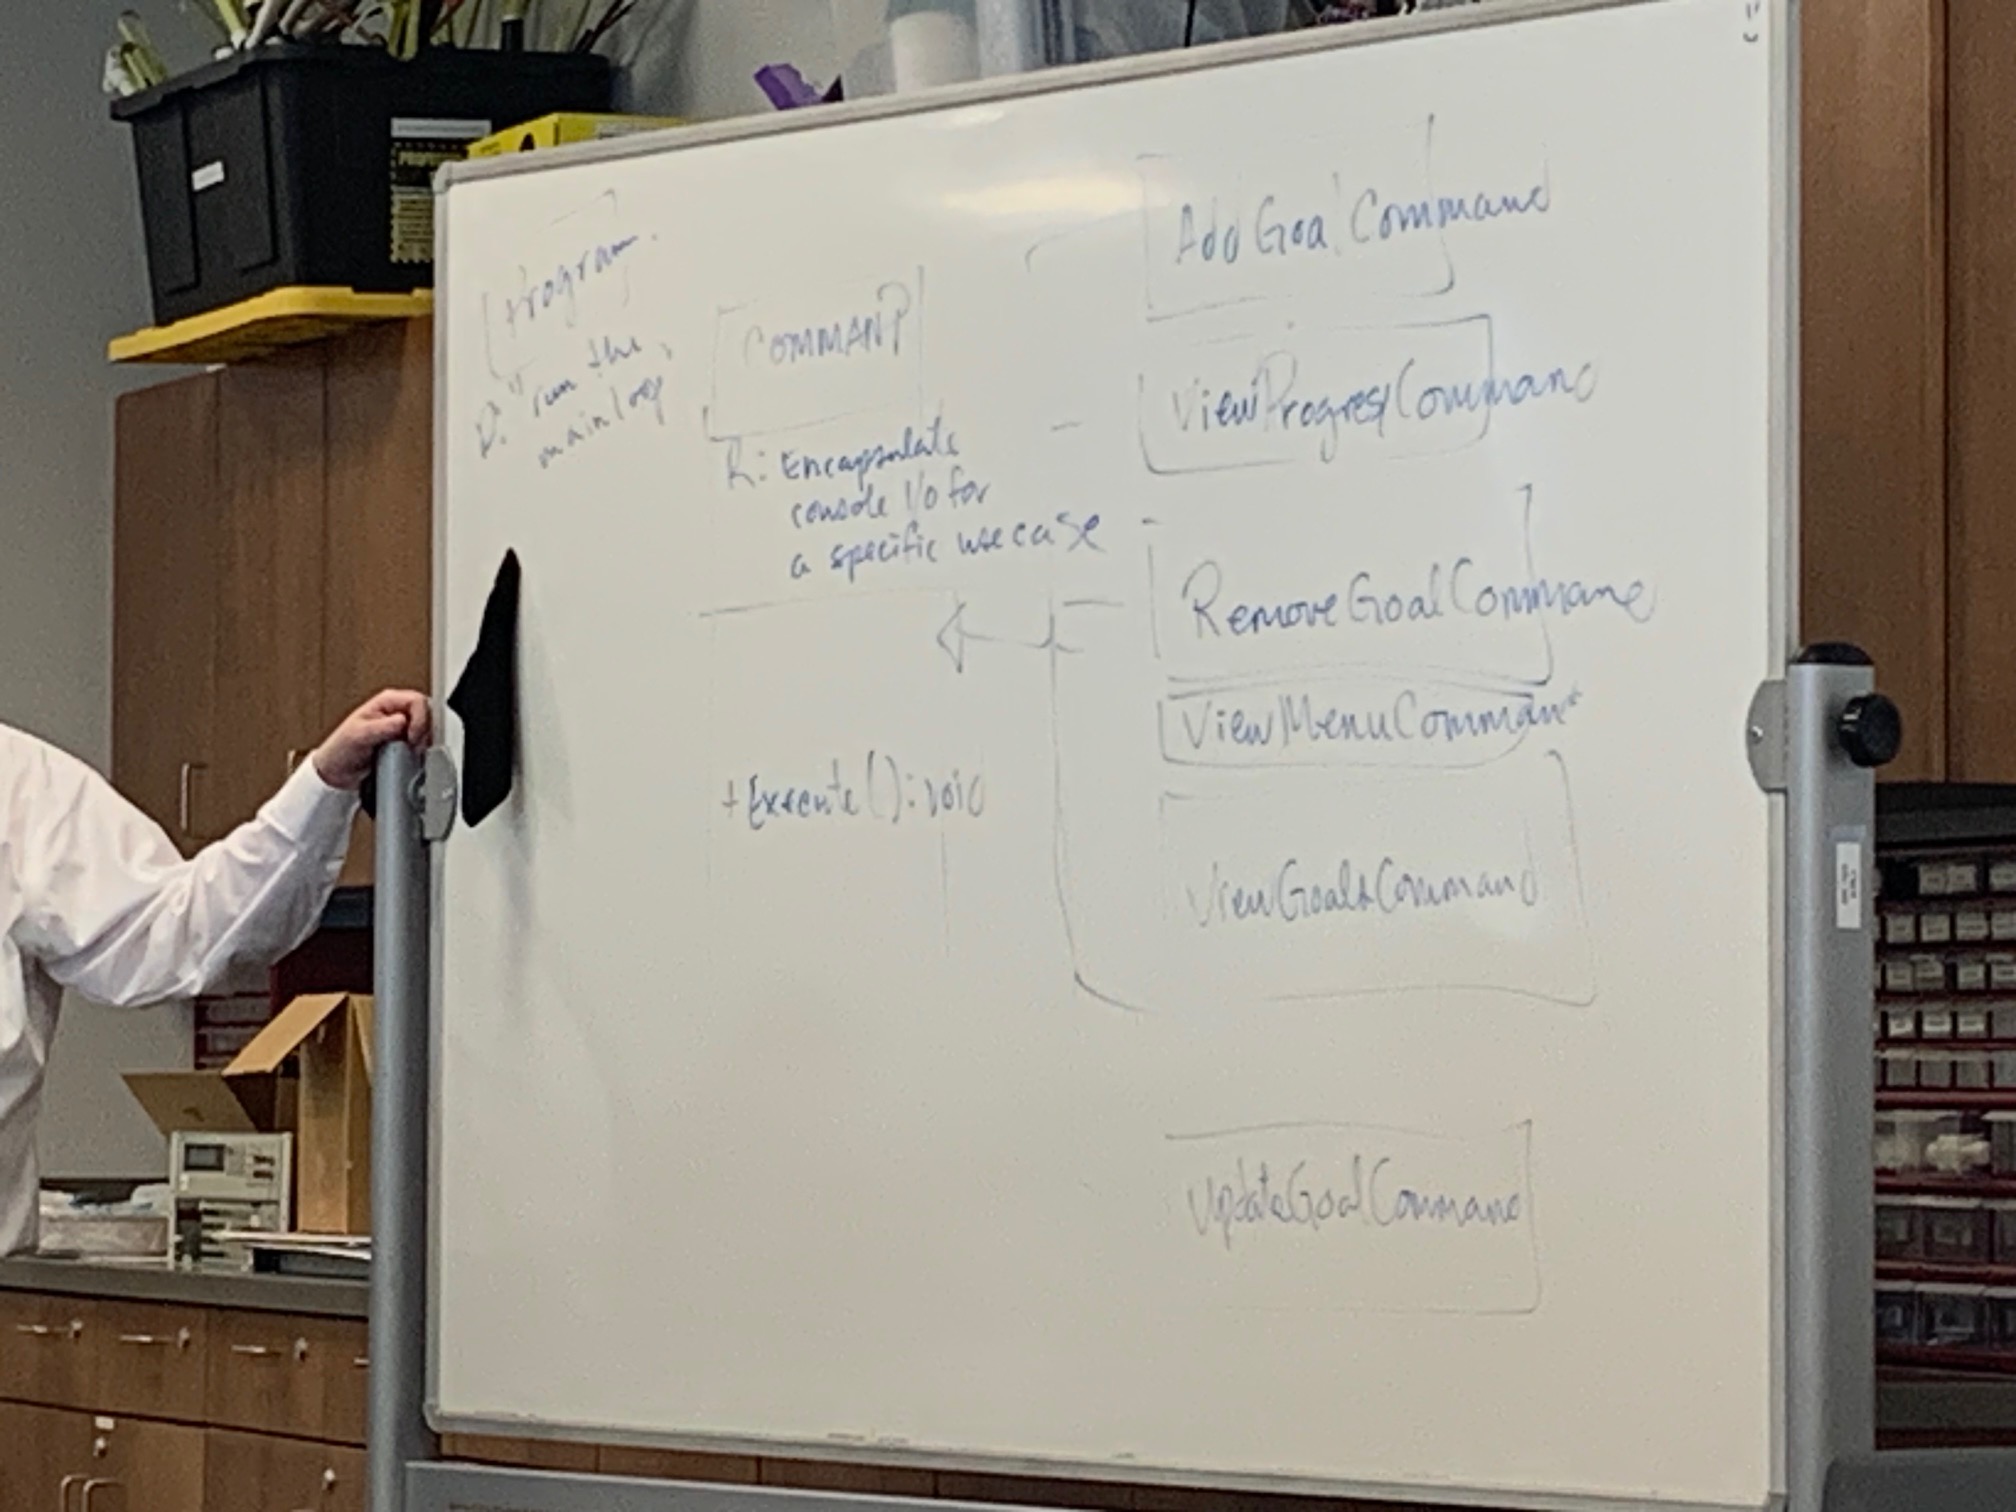 Program
R: "run the
main loop"
COMMAND
R: Encapsulate
console I/O for
a specific use case
+Execute(): void
AddGoalCommand
ViewProgressCommand
RemoveGoalCommand
ViewMenuCommand
ViewGoalsCommand
UpdateGoalCommand